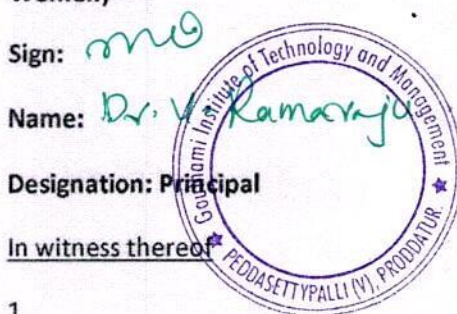 Sign:
Name: Dr. V. Ramaraju
Designation: Principal
In witness thereof
1
Institute of Technology and Management
PEDDASETTYPALLI (V), PRODDATUR.